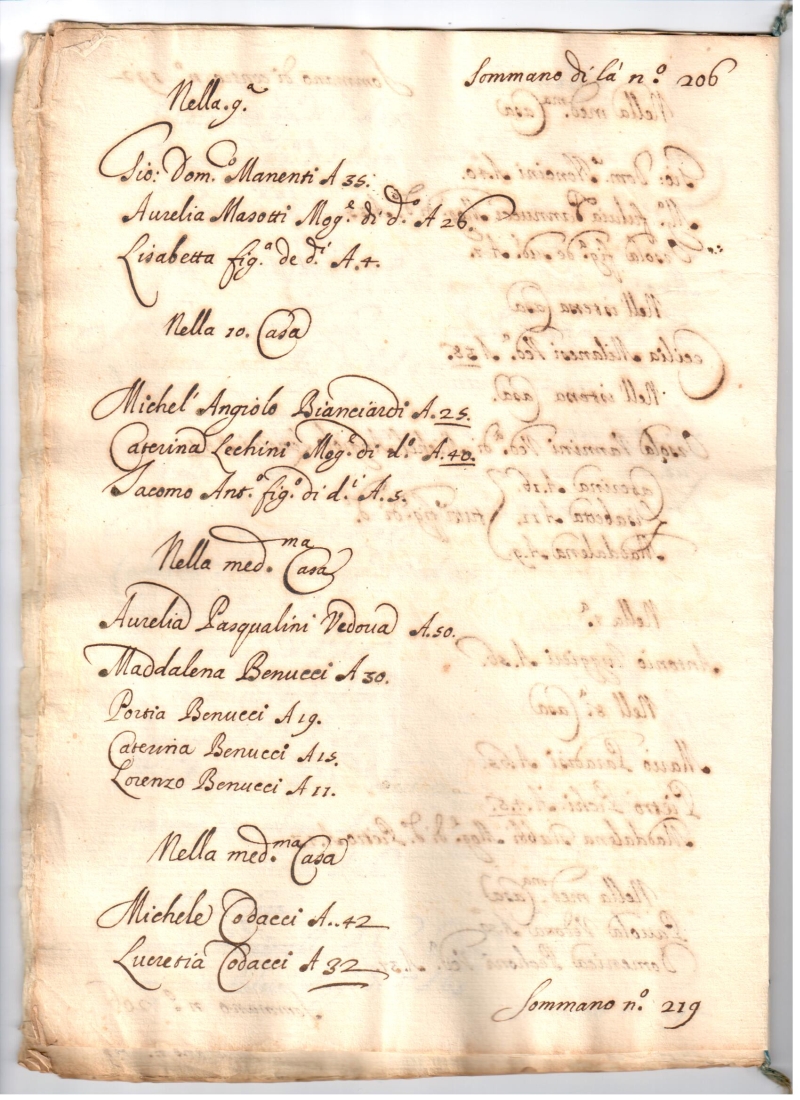 Sommano di là n.º 206
Nella 9.ª
Gio: Dom.º Manenti A 35.
Aurelia Masotti Mog.ᵉ di d.º A 26.
Lisabetta fig.ª de d.ⁱ A. 4.
Nella 10. Casa
Michel' Angiolo Bianciardi A. 25.
Caterina Lechini Mog.ᵉ di d.º A. 40.
Iacomo Ant.º fig.º di d.ⁱ A. 5.
Nella med.ᵐᵃ Casa
Aurelia Pasqualini Vedoua A. 50.
Maddalena Benucci A 30.
Portia Benucci A 19.
Caterina Benucci A 15.
Lorenzo Benucci A 11.
Nella med.ᵐᵃ Casa
Michele Codacci A. 42
Lucretia Codacci A 32
Sommano n.º 219